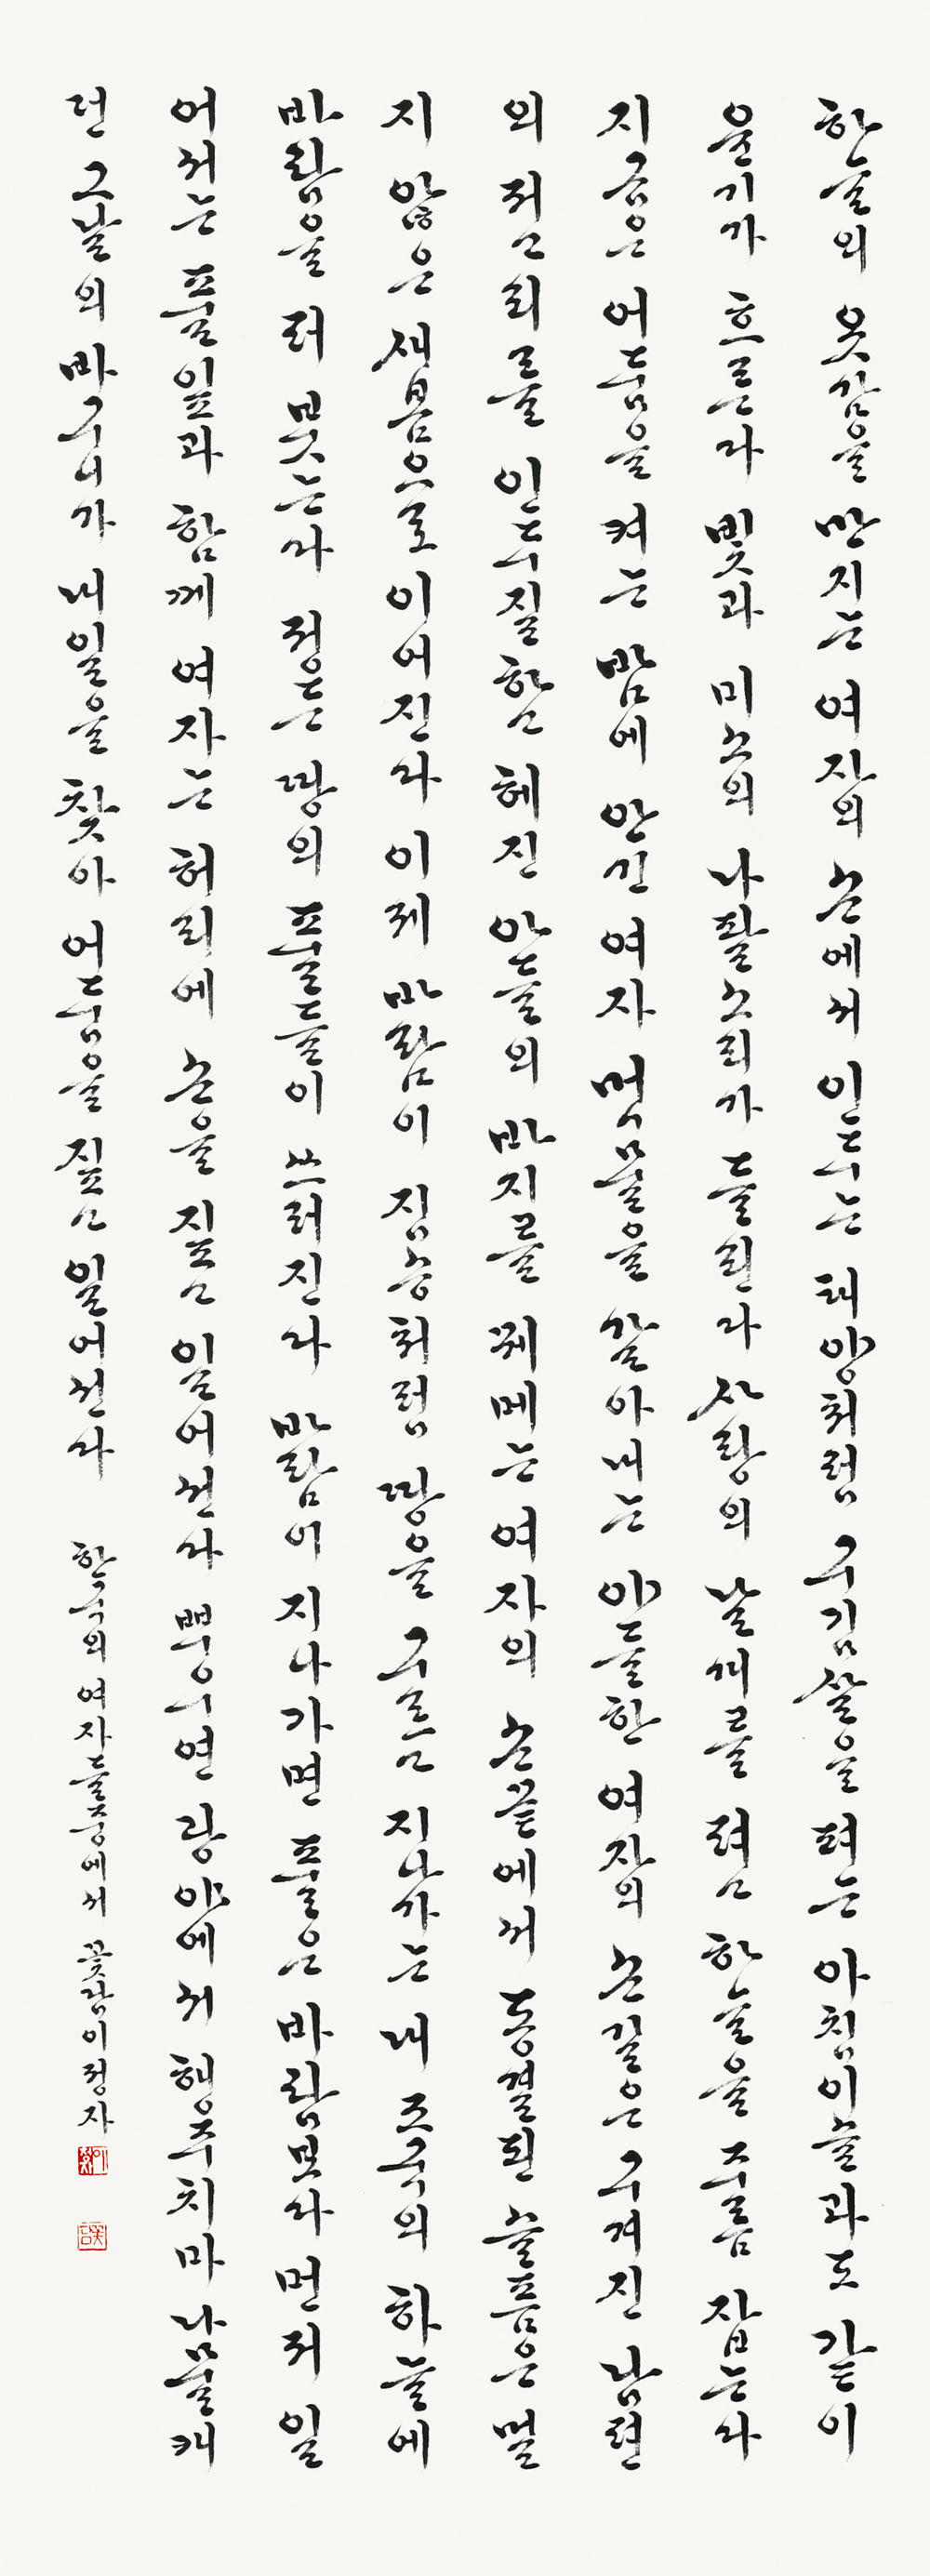 하늘의 옷감을 만지는 여자의 손에서 인두는 태양처럼 구김살을 펴는 아침이슬과도 같이
윤기가 흐른다 빛과 미소의 나팔소리가 들린다 사랑의 날개를 펴고 하늘을 주름 잡는다
지금은 어둠을 켜는 밤에 안긴 여자 먹물을 갈아내는 야들한 여자의 손길은 구겨진 남편
의 저고리를 인두질하고 헤진 아들의 바지를 꿰메는 여자의 손끝에서 동결된 슬픔은 멀
지 않은 새봄으로 이어진다 이제 바람이 짐승처럼 땅을 구르고 지나가는 내 조국의 하늘에
바람을 정든 땅의 풀들이 쓰러진다 바람이 지나가면 풀은 바람보다 먼저 일
어서는 풀잎과 함께 여자는 허리에 손을 짚고 일어선다 뿌우연 광야에서 행주치마 나물캐
던 그날의 바구니가 내일을 찾아 어둠을 짚고 일어선다 한국의 여자들중에서 이정자